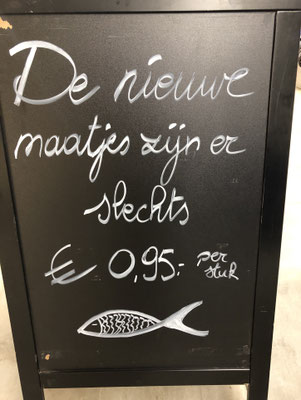 De nieuwe
maatjes zijn er
slechts
€ 0,95.- per
stuk